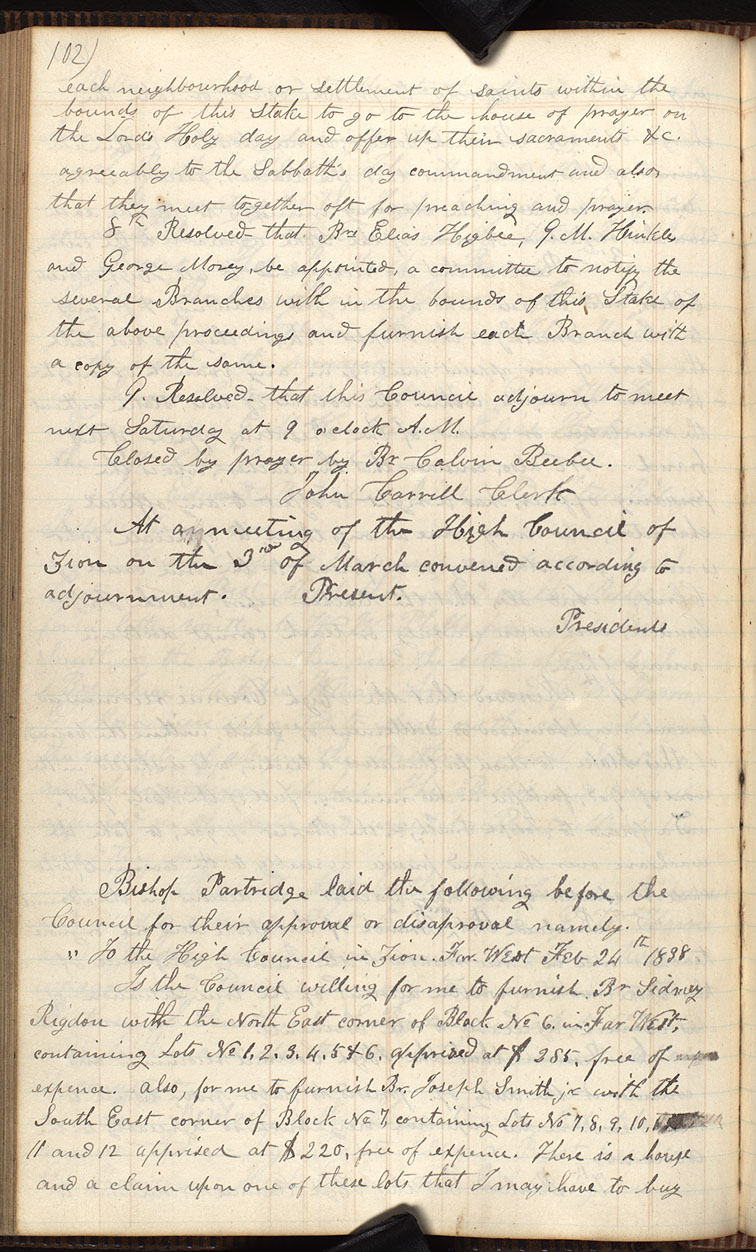 102)
each neighbourhood or settlement of saints within the
bounds of this Stake to go to the house of prayer on
the Lords Holy day and offer up their sacraments &c.
agreeably to the Sabbath's day commandment and also,
that they meet together oft for preaching and prayer.
8th Resolved that Brs Elias Higbee, G. M. Hinkle
and George Morey, be appointed, a committee to notify the
several Branches with in the bounds of this Stake of
the above proceedings and furnish each Branch with
a copy of the same.
9. Resolved that this Council adjourn to meet
next Saturday at 9 oclock A.M.
Closed by prayer by Br Calvin Beebee.
John Carrill Clerk
At a meeting of the High Council of
Zion on the 3rd of March convened according to
adjournment. Present.
Presidents
Bishop Partridge laid the following before the
Council for their approval or disaproval namely.
" To the High Council in Zion. Far West Feb 24th 1838
Is the Council willing for me to furnish Br Sidney
Rigdon with the North East corner of Block No 6. in Far West,
containing Lots No 1, 2, 3, 4, 5 & 6. apprised at $ 285, free of
expence. also, for me to furnish Br. Joseph Smith jr with the
South East corner of Block No 7, containing Lots No 7, 8, 9, 10,
11 and 12 apprised at $ 220, free of expence. There is a house
and a claim upon one of these lots that I may have to buy